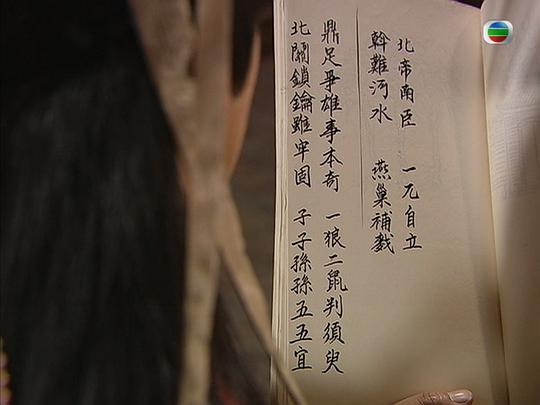 北帝南臣　一兀自立
斡難河水　燕巢補
鼎足爭雄事本奇　一狼二鼠判須臾
北關鎖鑰雖牢固　子子孫孫五五宜